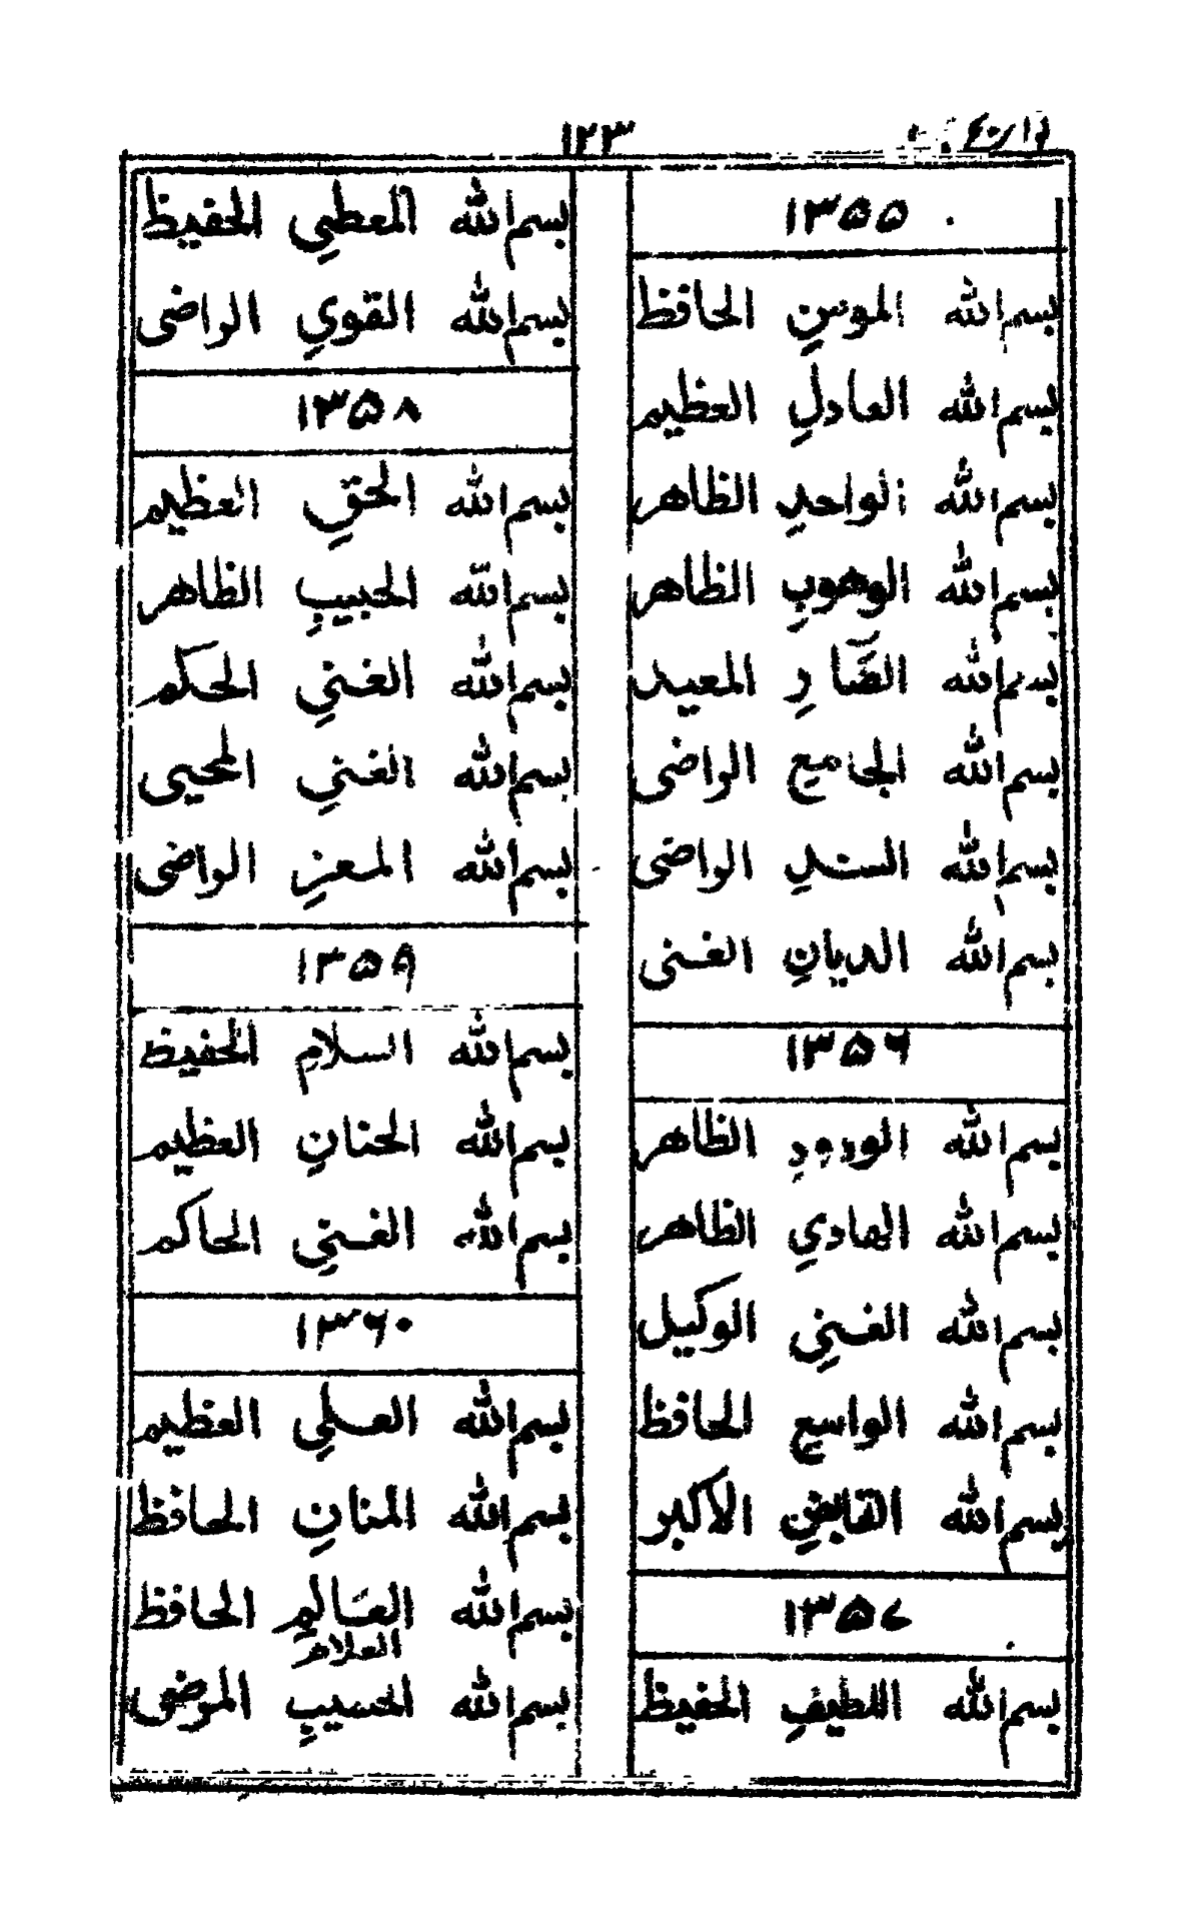 ۱۲۳
۱۳۵۵
بسم الله المومنِ الحافظ
بسم الله العادلِ العظيم
بسم الله الواحدِ الظاهر
بسم الله الوهوبِ الظاهر
بسم الله الضَّآرِ المعيد
بسم الله الجامعِ الراضى
بسم الله الراضى
بسم الله الديانِ الغنى
۱۳۵۶
بسم الله الودودِ الظاهر
بسم الله الهاديِ الظاهر
بسم الله الغنيِ الوكيل
بسم الله الواسعِ الحافظ
بسم الله القابضِ الاكبر
۱۳۵۷
بسم الله اللطيفِ الحفيظ
بسم الله المعطيِ الحفيظ
بسم الله القويِ الراضى
۱۳۵۸
بسم الله الحقِ العظيم
بسم الله الحبيبِ الظاهر
بسم الله الغنيِ الحكم
بسم الله الغنيِ المحيى
بسم الله المعزِ الراضى
۱۳۵۹
بسم الله السلامِ الحفيظ
بسم الله الحنانِ العظيم
بسم الله الغنيِ الحاكم
۱۳۶۰
بسم الله العليِ العظيم
بسم الله المنانِ الحافظ
بسم الله العَالمِ الحافظ
العلام
بسم الله الحسيبِ المرضى